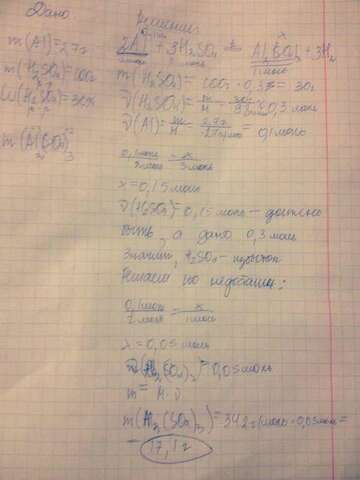 Дано
m(Al)=2,7г
m(H₂SO₄)=100г
W(H₂SO₄)=30%
m(Al₂(SO₄)₃)
Решение
2Al + 3H₂SO₄ → Al₂(SO₄)₃ + 3H₂
m(H₂SO₄) = 100г · 0,3 = 30г
ν(H₂SO₄) = m/M = 0,3 моль
ν(Al) = m/M = 2,7г/27г/моль = 0,1 моль
0,1моль/2моль = x/3моль
x = 0,15 моль
ν(H₂SO₄) = 0,15 моль – должно
быть, а дано 0,3 моль
Значит, H₂SO₄ – избыток
Решаем по недостатку:
0,1моль/2моль = x/1моль
x = 0,05 моль
ν(Al₂(SO₄)₃) = 0,05 моль
m = M · ν
m(Al₂(SO₄)₃) = 342г/моль · 0,05моль =
= 17,1г